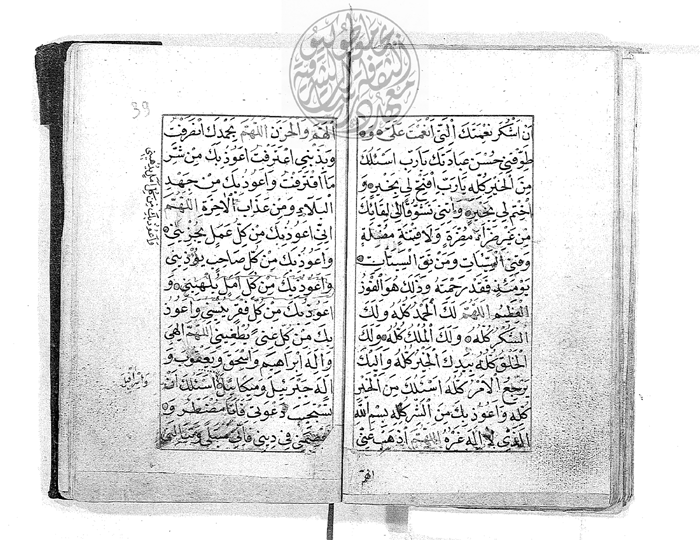 ان اشكر نعمتك التى انعمت على و
طوقني حسن عبادتك يارب اسئلك
من الخير كله يارب افتح لى بخير و
اختم لى بخير و اتنى شوقا الى لقائك
من غير ضرآء مضرة ولا فتنة مضلة
وقنى السيئات ومن تق السيئات
يومئذ فقد رحمته وذلك هو الفوز
العظيم اللهم لك الحمد كله ولك
الشكر كله ولك الملك كله ولك
الخلق كله بيدك الخير كله واليك
يرجع الامر كله اسئلك من الخير
كله واعوذ بك من الشر كله بسم الله
الذى لا اله غيره اللهم اذهب عنى
الهم
39
الهم والحزن اللهم بحمدك انصرفت
وبذنبى اعترفت اعوذ بك من شر
ما اقترفت واعوذ بك من جهد
البلاء ومن عذاب الاخرة اللهم
انى اعوذ بك من كل عمل يخزينى
واعوذ بك من كل صاحب يؤذينى
واعوذ بك من كل امل يلهينى و
اعوذ بك من كل فقر ينسينى واعوذ
بك من كل غنى يطغينى اللهم الهى
واله ابراهيم واسحق ويعقوب و
اله جبريل وميكائيل اسئلك ان
تستجيب دعوتى فانا مضطر و
تعصمنى فى دينى فانى مبتلى وتنالنى
واسرافيل